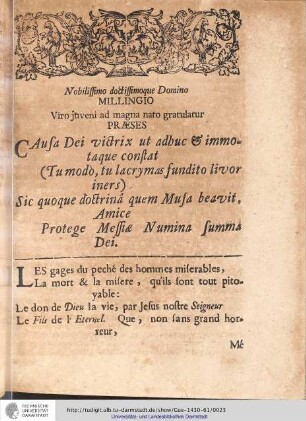 Nobilissimo doctissimoque Domino
MILLINGIO
Viro juveni ad magna nato gratulatur
PRÆSES
CAusa Dei victrix ut adhuc & immo-
taque constat
(Tu modò, tu lacrymas fundito livor
iners)
Sic quoque doctrinâ quem Musa beavit,
Amice
Protege Messiæ Numina summa
Dei.
LES gages du peché des hommes miserables,
La mort & la misere, qu'ils sont tout pito-
yable:
Le don de Dieu la vie, par Jesus nostre Seigneur
Le Fils de l' Eternel. Que, non sans grand hor-
reur,
Mé
TECHNISCHE
UNIVERSITÄT
DARMSTADT
http://tudigit.ulb.tu-darmstadt.de/show/Gue-1430-61/0023
Universitäts- und Landesbibliothek Darmstadt